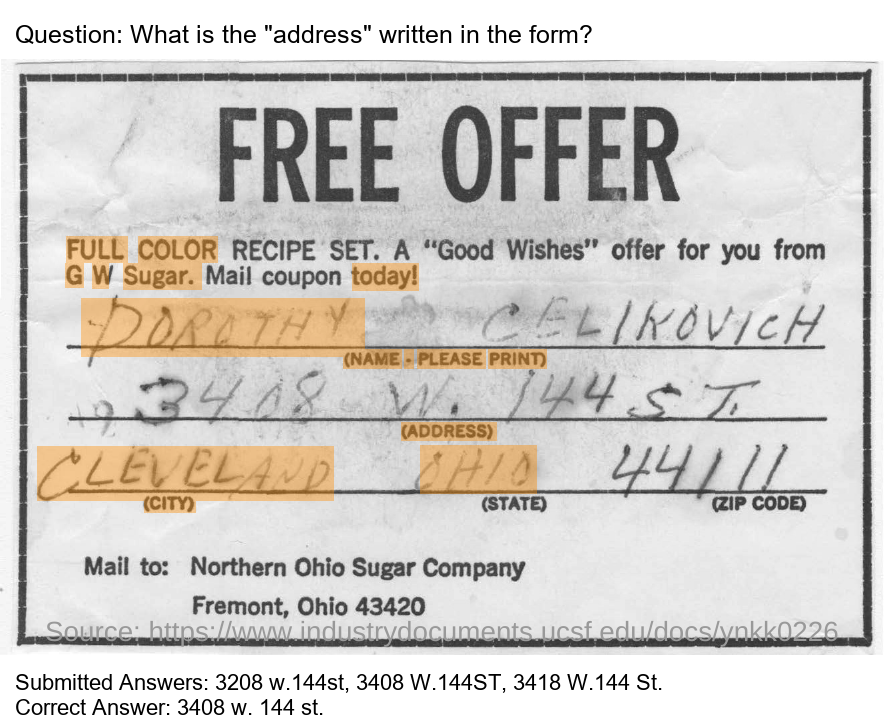 Question: What is the "address" written in the form?
FREE OFFER
FULL COLOR RECIPE SET. A “Good Wishes” offer for you from
G W Sugar. Mail coupon today!
DOROTHY CELIKOVICH
(NAME - PLEASE PRINT)
3408 W. 144 ST.
(ADDRESS)
CLEVELAND OHIO 44111
(CITY) (STATE) (ZIP CODE)
Mail to: Northern Ohio Sugar Company
Fremont, Ohio 43420
Source: https://www.industrydocuments.ucsf.edu/docs/ynkk0226
Submitted Answers: 3208 w.144st, 3408 W.144ST, 3418 W.144 St.
Correct Answer: 3408 w. 144 st.